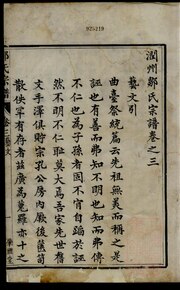 925-219
潤州鄒氏宗譜卷之三
藝文引
曲臺祭統篇云先祖無美而稱之是
誣也有善而弗知不明也知而弗傳
不仁也為子孫者固不宜自蹈於誣
然不明不仁耻莫大焉吾家先世舊
文手澤俱貯宗孔公房內厥後篋笥
散佚罕有存者茲廣為蒐羅亦十之